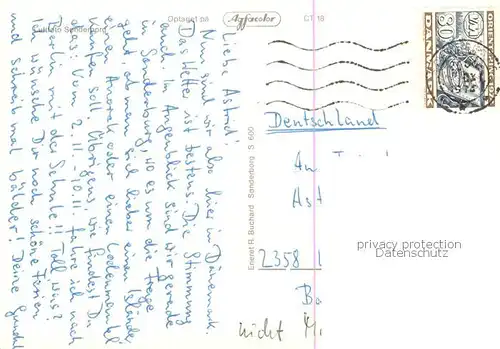 Optaget på
Agfacolor
CT 18
Liebe Astrid!
Nun sind wir also hier in Dänemark.
Das Wetter ist bestens. Die Stimmung
auch. Im Augenblick sind wir gerade
in Sonderburg, wo es um die Frage
geht, ob man sich lieber einen Isländer
einen Anorak oder einen Lodenmantel
kaufen soll. Übrigens, wie findest Du
das: Vom 2.11.-10.11. fahre ich nach
Berlin mit der Schule!! Toll, was?
Ich wünsche Dir noch schöne Ferien
und schreib mal bälder! Deine
Eneret R. Buchard Sønderborg S 600
30
DANMARK
Deutschland
Ast
2358
Ba
nicht
privacy protection
Datenschutz